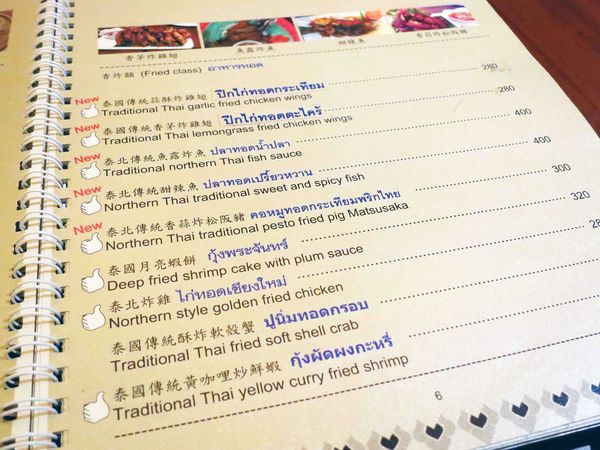 香茅炸雞翅 魚露炸魚 甜辣魚 香蒜炸松阪豬
香炸類 (Fried class) อาหารทอด
New 泰國傳統蒜酥炸雞翅 ปีกไก่ทอดกระเทียม 280
Traditional Thai garlic fried chicken wings
New 泰國傳統香茅炸雞翅 ปีกไก่ทอดตะไคร้ 280
Traditional Thai lemongrass fried chicken wings
New 泰北傳統魚露炸魚 ปลาทอดน้ำปลา 400
Traditional northern Thai fish sauce
New 泰北傳統甜辣魚 ปลาทอดเปรี้ยวหวาน 400
Northern Thai traditional sweet and spicy fish
New 泰北傳統香蒜炸松阪豬 คอหมูทอดกระเทียมพริกไทย 300
Northern Thai traditional pesto fried pig Matsusaka
泰國月亮蝦餅 กุ้งพระจันทร์ 320
Deep fried shrimp cake with plum sauce
泰北炸雞 ไก่ทอดเชียงใหม่
Northern style golden fried chicken
泰國傳統酥炸軟殼蟹 ปูนิ่มทอดกรอบ
Traditional Thai fried soft shell crab
泰國傳統黃咖哩炒鮮蝦 กุ้งผัดผงกะหรี่
Traditional Thai yellow curry fried shrimp
6